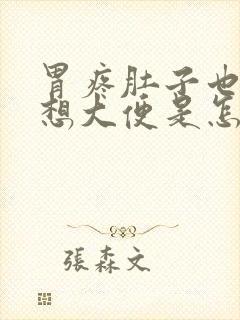 胃疼肚子也
想大便是怎
張森文